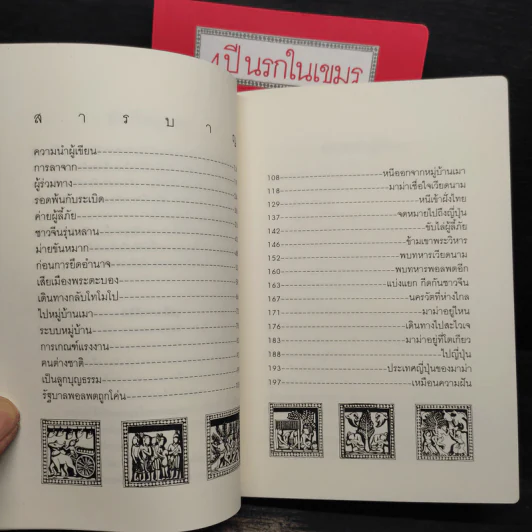 4ปีนรกในเขมร
สารบาญ
ความนำผู้เขียน
การลาจาก
ผู้ร่วมทาง
รอดพ้นกับระเบิด
ค่ายผู้ลี้ภัย
ชาวจีนรุ่นหลาน
ม่ายขันหมาก
ก่อนการยึดอำนาจ
เสียเมืองพระตะบอง
เดินทางกลับโทโมโป
ไปหมู่บ้านเมา
ระบบหมู่บ้าน
การเกณฑ์แรงงาน
คนต่างชาติ
เป็นลูกบุญธรรม
รัฐบาลพอลพตถูกโค่น
108 หนีออกจากหมู่บ้านเมา
118 มาม่าเชื่อใจเวียดนาม
129 หนีเข้าฝั่งไทย
137 จดหมายไปถึงญี่ปุ่น
142 ขับไล่ผู้ลี้ภัย
146 ข้ามเขาพระวิหาร
152 พบทหารเวียดนาม
160 พบทหารพอลพตอีก
163 แบ่งแยก กีดกันชาวจีน
167 นครวัดที่ห่างไกล
171 มาม่าอยู่ไหน
176 เดินทางไปสะไวเจ
183 มาม่าอยู่ที่โตเกียว
188 ไปญี่ปุ่น
193 ประเทศญี่ปุ่นของมาม่า
197 เหมือนความฝัน